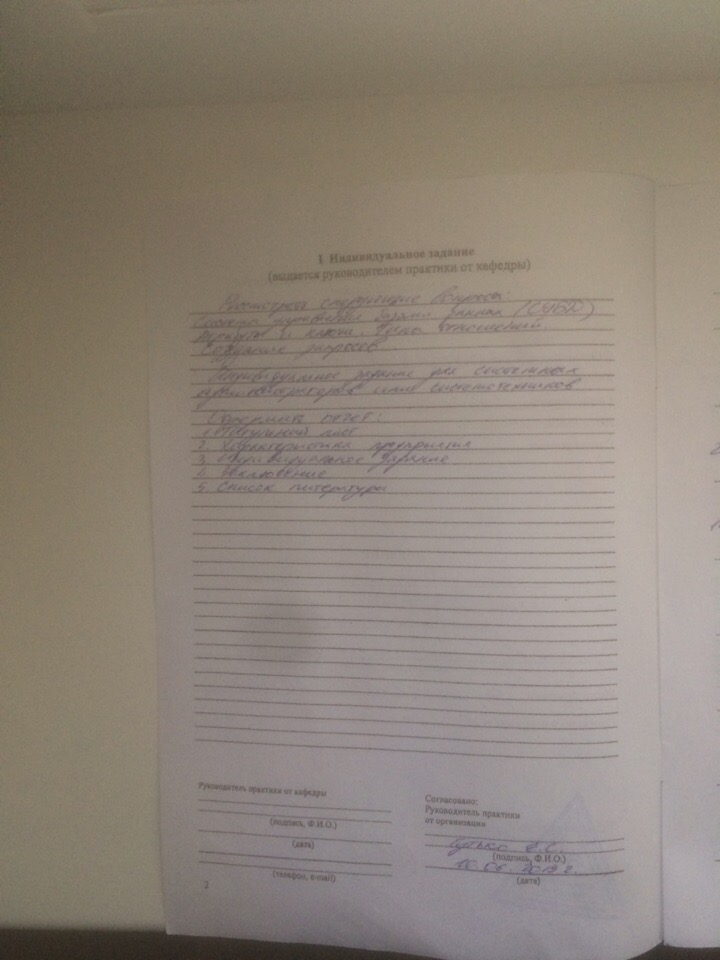 I Индивидуальное задание
(выдается руководителем практики от кафедры)
Рассмотреть следующие вопросы:
Системы управления базами данных (СУБД)
и ключи. Типы отношений.
Создание запросов.
Индивидуальное задание для системных
администраторов или системотехников
Оформить отчет:
1. Титульный лист
2. Характеристика предприятия
3. Индивидуальное задание
4. Заключение
5. Список литературы
Руководитель практики от кафедры
(подпись, Ф.И.О.)
(дата)
(телефон, e-mail)
2
Согласовано:
Руководитель практики
от организации
Е.С.
(подпись, Ф.И.О.)
10.06.2019 г.
(дата)